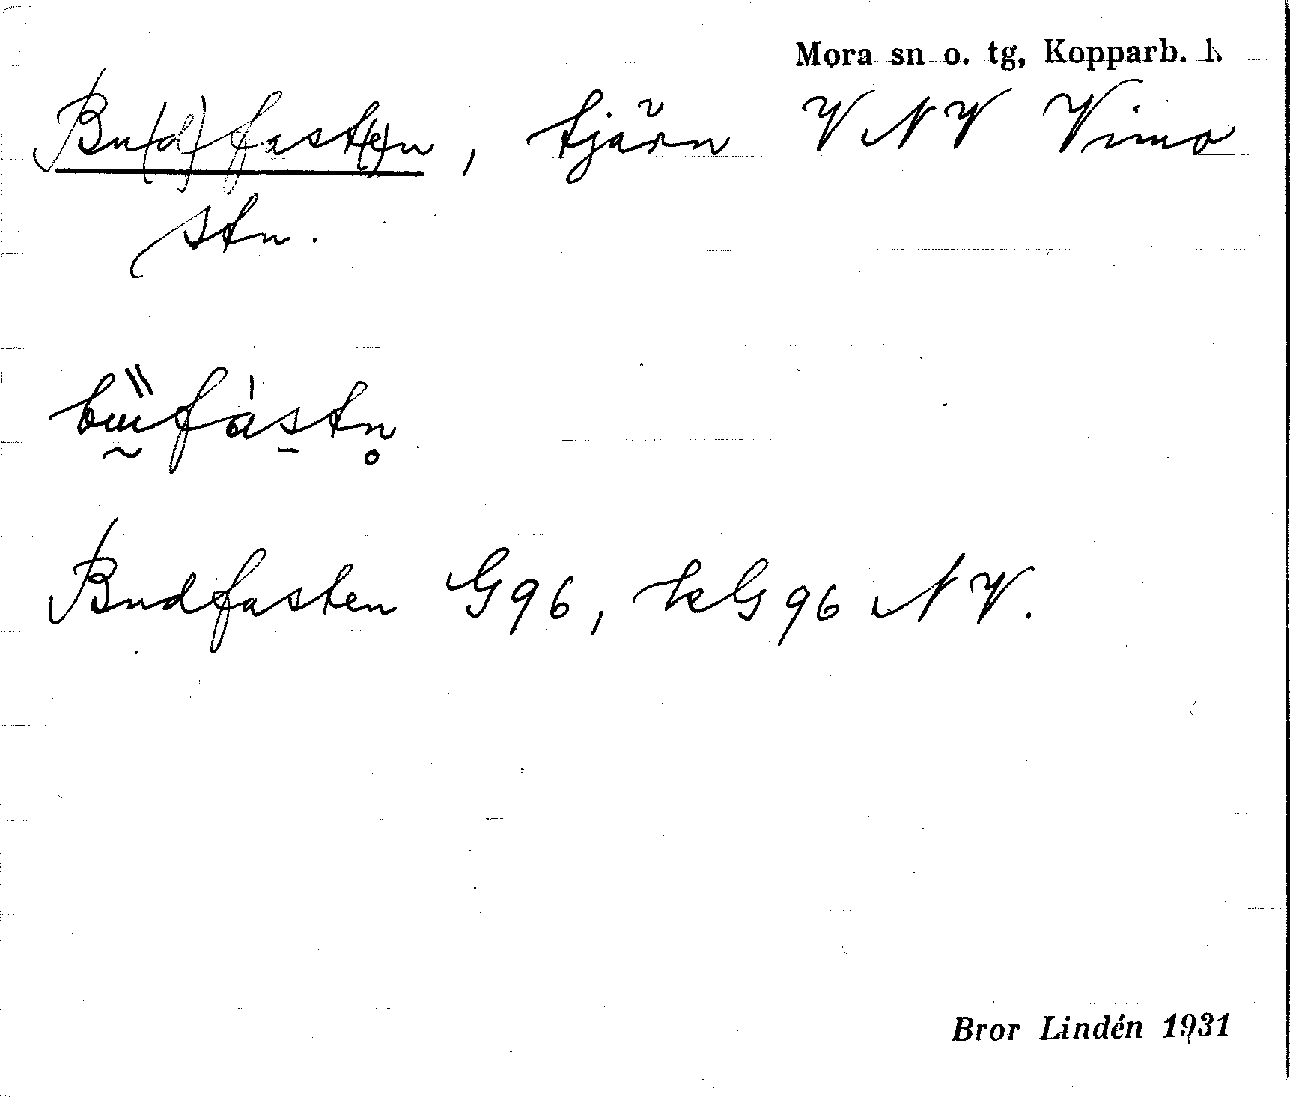 Mora sn o. tg, Kopparb. l.
Bu(d)fast(e)n, tjärn V NV Vimo
stn.
Budfasten G96, kG96 NV.
Bror Lindén 1931